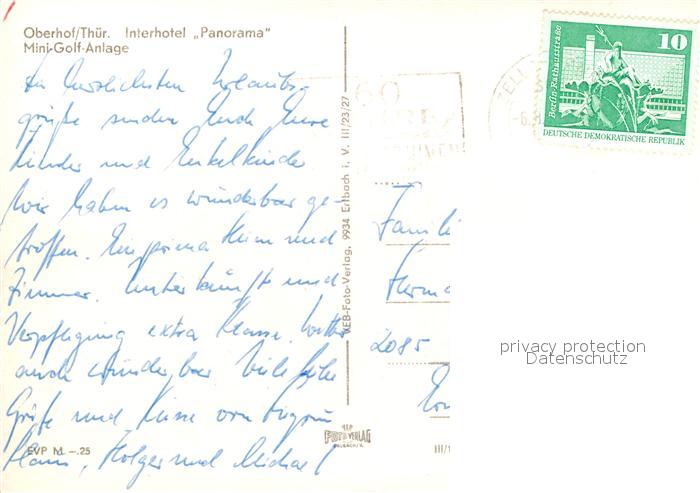 Oberhof/Thür. Interhotel „Panorama"
Mini-Golf-Anlage
Die herzlichsten Urlaubs-
grüße senden Euch Eure
Kinder und Enkelkinder.
Wir haben es wunderbar ge-
troffen. Ein prima Heim und
Zimmer. Unterkünfte und
Verpflegung extra Klasse. Wetter
auch wunderbar Viele liebe
Grüße und Küsse von
Hans, Holger und Michael
EVP M -.25
VEB-Foto-Verlag, 9934 Erlbach i. V. III/23/27
FOTO VERLAG
III/1
Famili
Herma
2085
Berlin-Rathausstraße
10
DEUTSCHE DEMOKRATISCHE REPUBLIK
privacy protection
Datenschutz